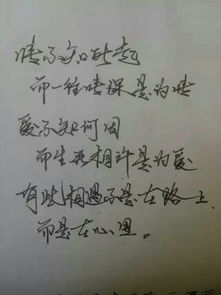 情不知所起
而一往情深是为情
爱不知何因
而生死相许是为爱
有些相遇不是在路上
而是在心里。